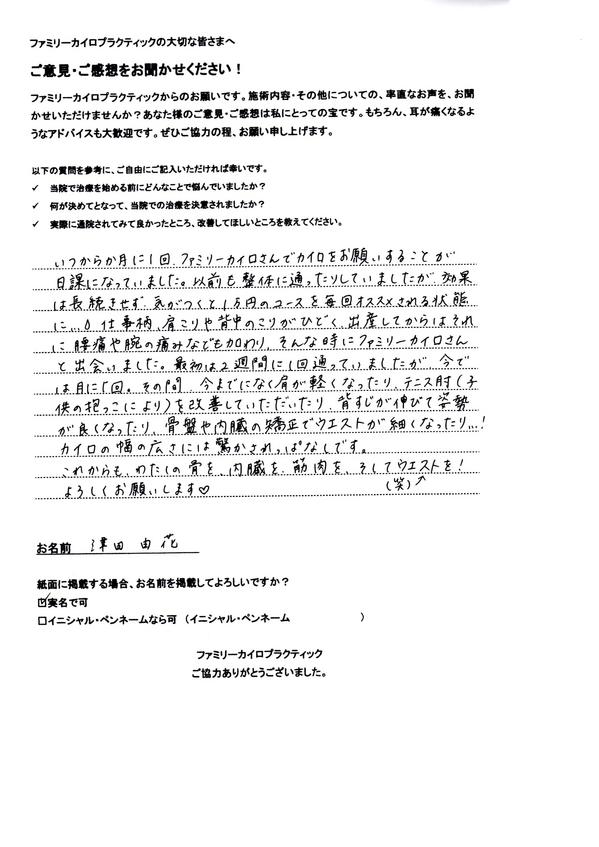 ファミリーカイロプラクティックの大切な皆さまへ
ご意見・ご感想をお聞かせください！
ファミリーカイロプラクティックからのお願いです。施術内容・その他についての、率直なお声を、お聞
かせいただけませんか？あなた様のご意見・ご感想は私にとっての宝です。もちろん、耳が痛くなるよ
うなアドバイスも大歓迎です。ぜひご協力の程、お願い申し上げます。
以下の質問を参考に、ご自由にご記入いただければ幸いです。
✓ 当院で治療を始める前にどんなことで悩んでいましたか？
✓ 何が決めてとなって、当院での治療を決意されましたか？
✓ 実際に通院されてみて良かったところ、改善してほしいところを教えてください。
いつからか月に1回、ファミリーカイロさんでカイロをお願いすることが
日課になっていました。以前も整体に通ったりしていましたが、効果
は長続きせず、気がつくと1万円のコースを毎回オススメされる状態
に…。仕事柄、肩こりや背中のこりがひどく、出産してからはそれ
に腰痛や腕の痛みなども加わり、そんな時にファミリーカイロさん
と出会いました。最初は2週間に1回通っていましたが、今で
は月に1回。その間、今までになく肩が軽くなったり、テニス肘(子
供の抱っこにより)を改善していただいたり、背すじが伸びて姿勢
が良くなったり、骨盤や内臓の矯正でウエストが細くなったり…!
カイロの幅の広さには驚かされっぱなしです。
これからも、わたしの骨を、内臓を、筋肉を、そしてウエストを!
よろしくお願いします♡ (笑)
お名前 津田 由花
紙面に掲載する場合、お名前を掲載してよろしいですか？
☑実名で可
□イニシャル・ペンネームなら可 （イニシャル・ペンネーム ）
ファミリーカイロプラクティック
ご協力ありがとうございました。